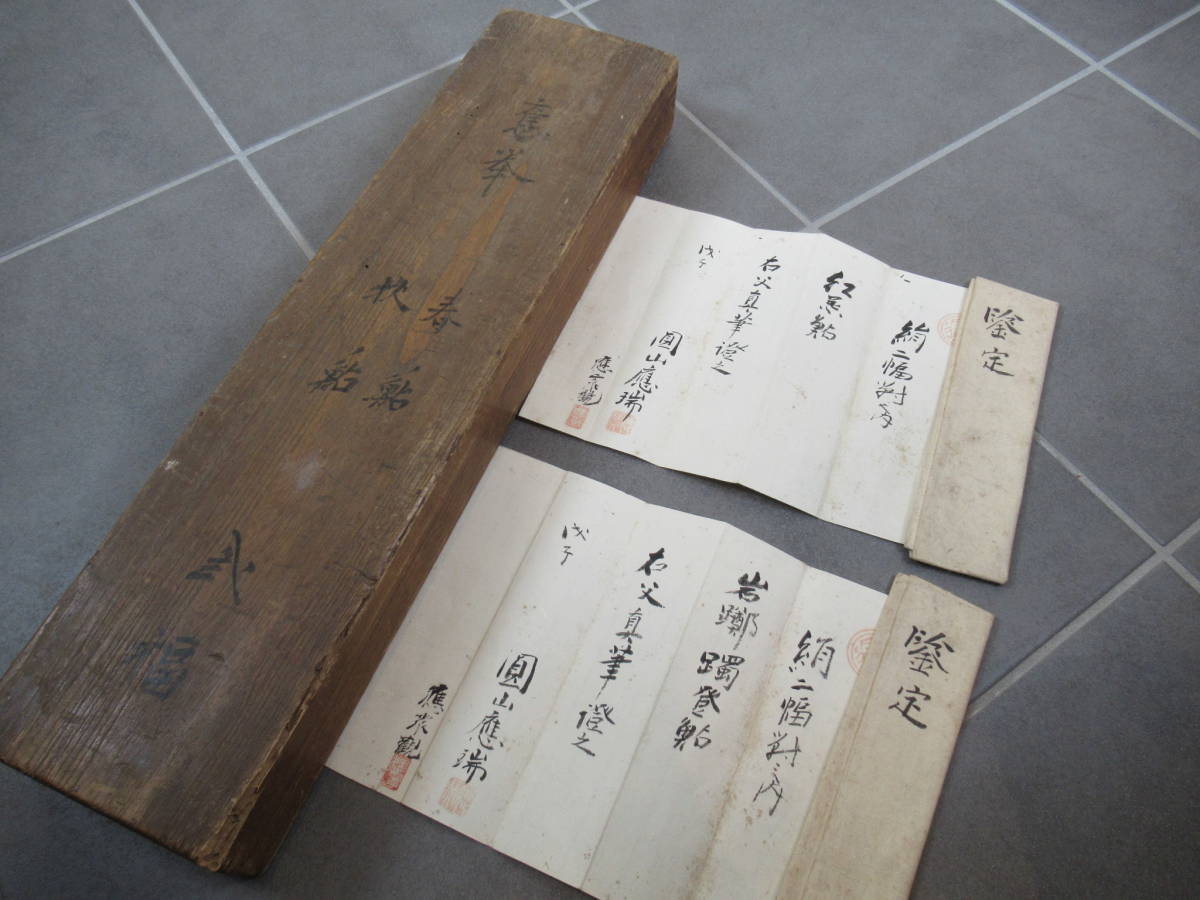 應挙
春鮎
秋鮎
弐幅
鑒定
絹二幅對之内
紅葉鮎
右父真筆證之
戊子
圓山應瑞
鑒定
絹二幅對之内
岩躑躅登鮎
右父真筆證之
戊子
圓山應瑞